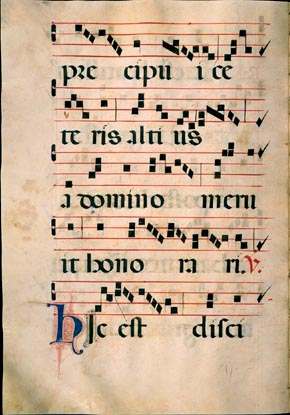 pre cipu i ce
te ris alti us
a domino meru
it hono ra ri. ℣.
Hic est disci